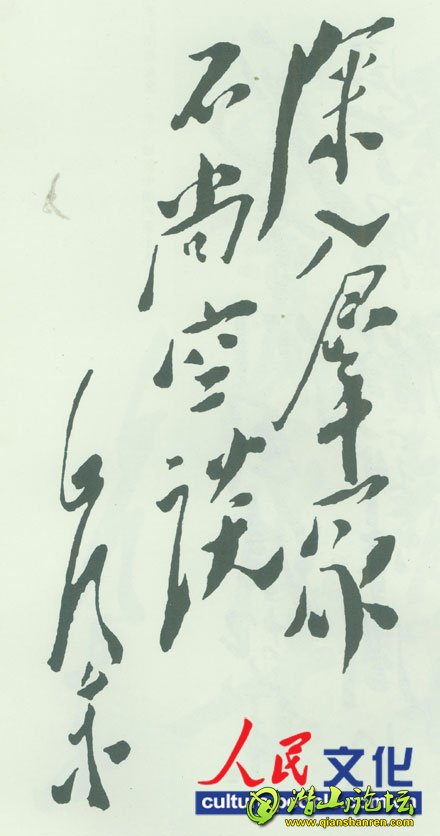 深入羣众
不尚空谈
毛泽东
人民文化
潜山论坛
www.qianshanren.com